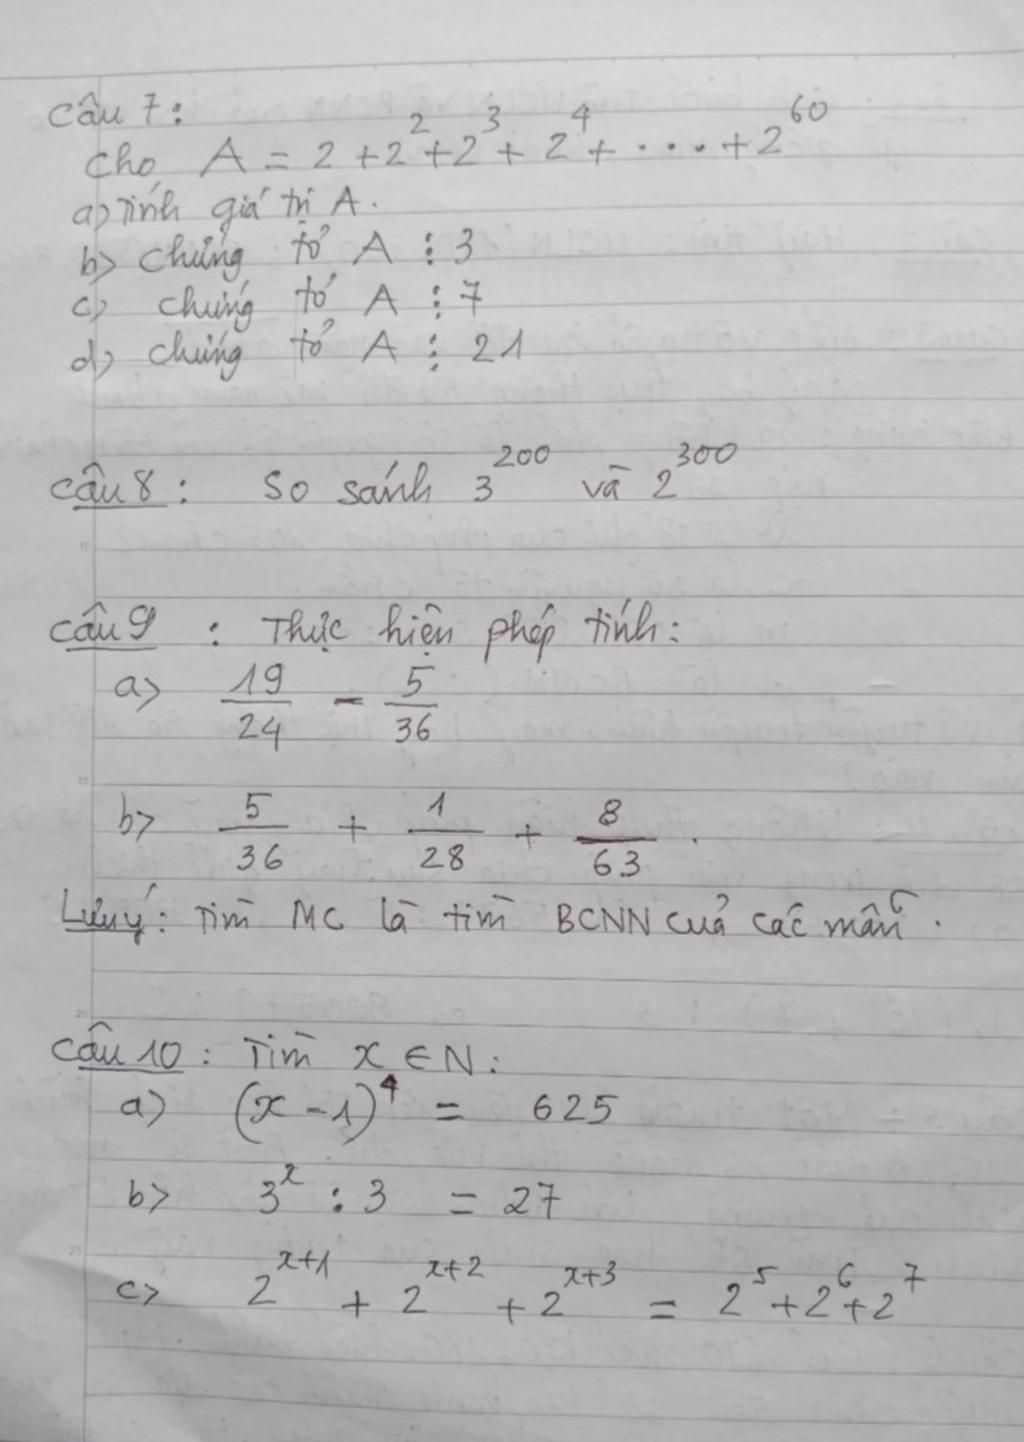 Câu 7:
Cho A = 2 + 2² + 2³ + 2⁴ + .... + 2⁶⁰
a) Tính giá trị A.
b) Chứng tỏ A ⋮ 3
c) chứng tỏ A ⋮ 7
d) chứng tỏ A ⋮ 21
Câu 8: So sánh 3²⁰⁰ và 2³⁰⁰
Câu 9: Thực hiện phép tính:
a) 19/24 - 5/36
b) 5/36 + 1/28 + 8/63.
Lưu ý: Tìm MC là tìm BCNN của các mẫu.
Câu 10: Tìm x ∈ N:
a) (x - 1)⁴ = 625
b) 3ˣ : 3 = 27
c) 2ˣ⁺¹ + 2ˣ⁺² + 2ˣ⁺³ = 2⁵ + 2⁶ + 2⁷